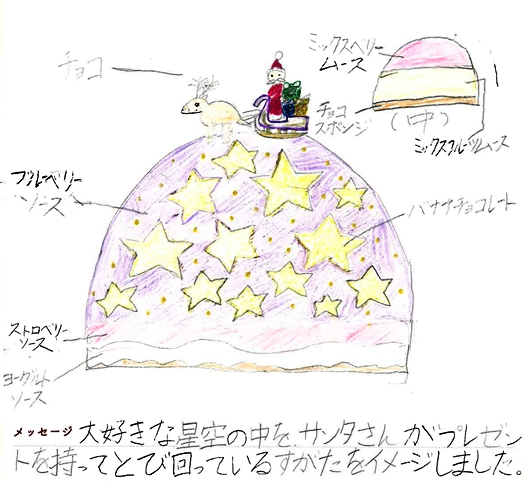 チョコ
ミックスベリー
ムース
チョコ
スポンジ
(中)
ミックスフルーツムース
ブルーベリー
ソース
バナナチョコレート
ストロベリー
ソース
ヨーグルト
ソース
メッセージ 大好きな星空の中を、サンタさんがプレゼン
トを持ってとび回っているすがたをイメージしました。